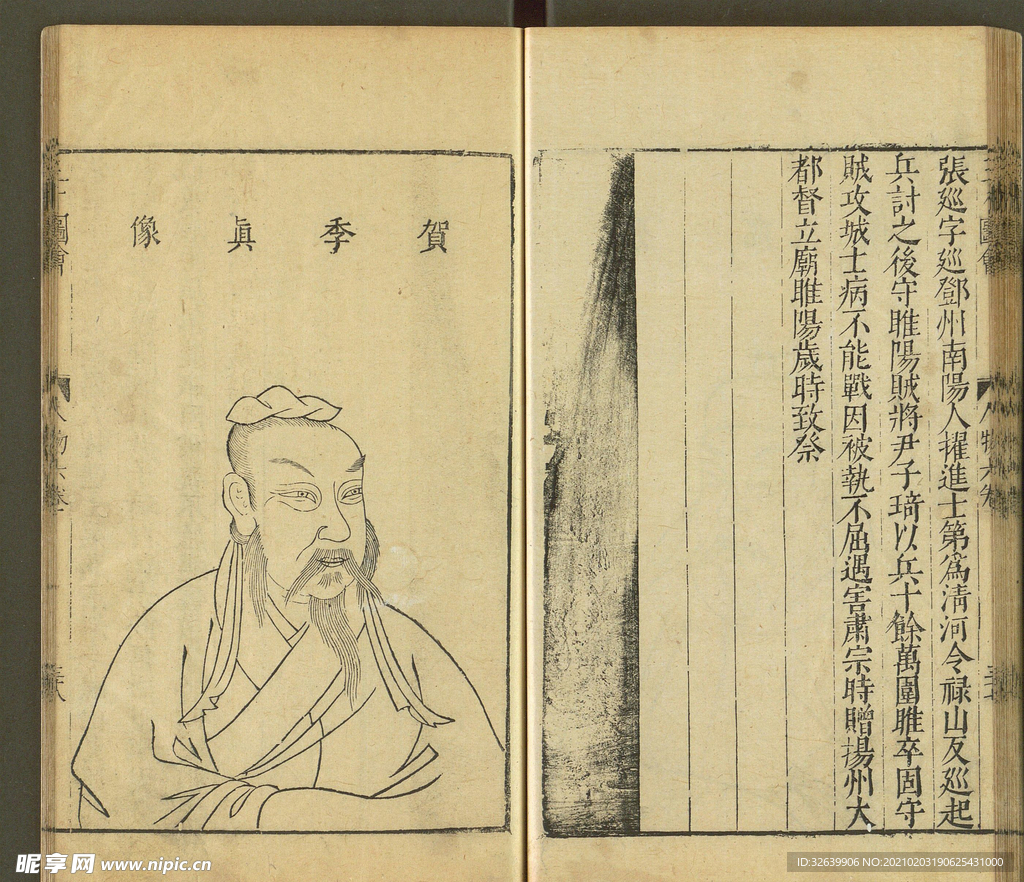 圖會
人物六卷
張廵字廵鄧州南陽人擢進士第爲清河令祿山反廵起
兵討之後守睢陽賊將尹子琦以兵十餘萬圍睢卒固守
賊攻城士病不能戰因被執不屈遇害肅宗時贈揚州大
都督立廟睢陽歲時致祭
賀季眞像
圖會
人物六卷
昵享网 www.nipic.cn
ID:32639906 NO:20210203190625431000